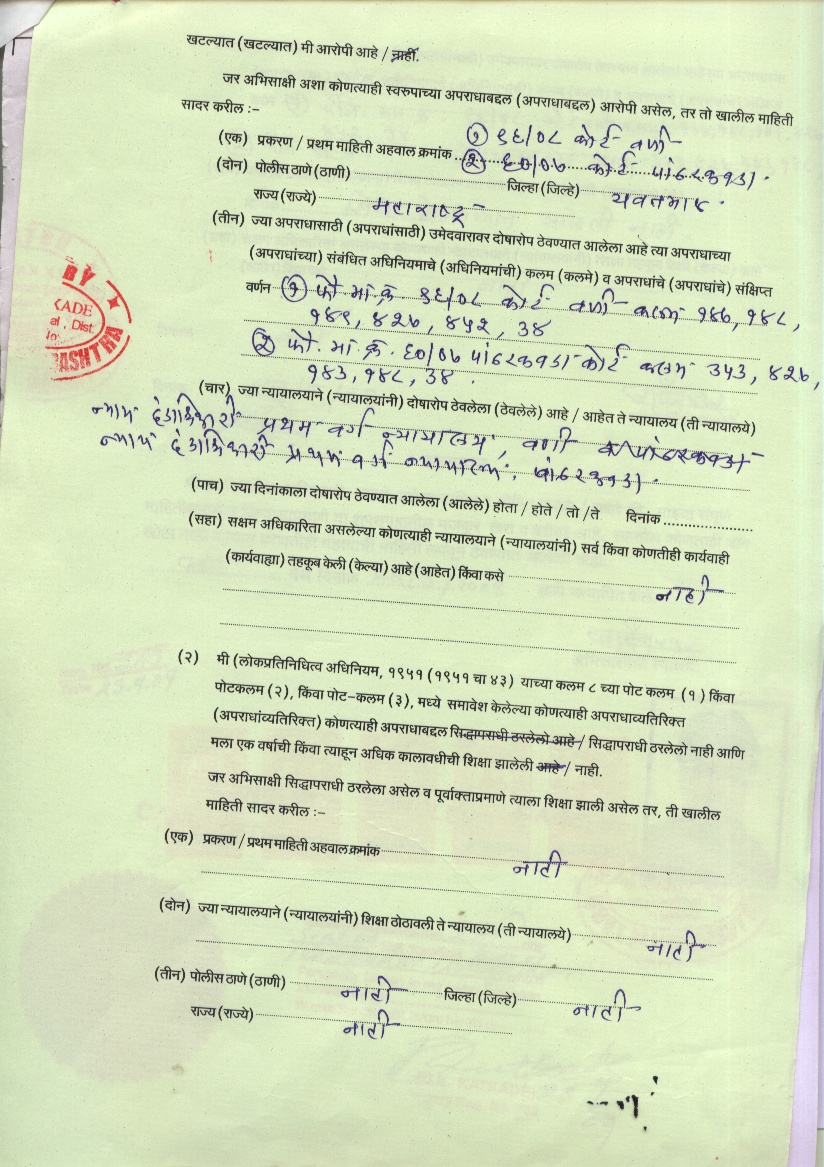 खटल्यात (खटल्यात) मी आरोपी आहे / नाही.
जर अभिसाक्षी अशा कोणत्याही स्वरुपाच्या अपराधाबद्दल (अपराधाबद्दल) आरोपी असेल, तर तो खालील माहिती
सादर करील :–
(एक) प्रकरण / प्रथम माहिती अहवाल क्रमांक (१) ९६/०८ कोर्ट वणी
(२) ६०/०७ कोर्ट पांढरकवडा.
(दोन) पोलीस ठाणे (ठाणी) जिल्हा (जिल्हे) यवतमाळ.
राज्य (राज्ये) महाराष्ट्र
(तीन) ज्या अपराधासाठी (अपराधांसाठी) उमेदवारावर दोषारोप ठेवण्यात आलेला आहे त्या अपराधाच्या
(अपराधांच्या) संबंधित अधिनियमाचे (अधिनियमांची) कलम (कलमे) व अपराधांचे (अपराधांचे) संक्षिप्त
वर्णन (१) फौ मां.क्रं ९६/०८ कोर्ट वणी कलम १४७, १४८,
१४९, ४२७, ४५२, ३४
(२) फौ. मां. क्रं. ६०/०७ पांढरकवडा कोर्ट कलम ३५३, ४२७,
१४३, १४८, ३४.
(चार) ज्या न्यायालयाने (न्यायालयांनी) दोषारोप ठेवलेला (ठेवलेले) आहे / आहेत ते न्यायालय (ती न्यायालये)
न्याय दंडाधिकारी प्रथम वर्ग न्यायालय, वणी
न्याय दंडाधिकारी प्रथम वर्ग न्यायालय, पांढरकवडा.
(पाच) ज्या दिनांकाला दोषारोप ठेवण्यात आलेला (आलेले) होता / होते / तो /ते दिनांक
(सहा) सक्षम अधिकारिता असलेल्या कोणत्याही न्यायालयाने (न्यायालयांनी) सर्व किंवा कोणतीही कार्यवाही
(कार्यवाह्या) तहकूब केली (केल्या) आहे (आहेत) किंवा कसे
नाही
(२) मी (लोकप्रतिनिधित्व अधिनियम, १९५१ (१९५१ चा ४३) याच्या कलम ८ च्या पोट कलम (१) किंवा
पोटकलम (२), किंवा पोट-कलम (३), मध्ये समावेश केलेल्या कोणत्याही अपराधाव्यतिरिक्त
(अपराधांव्यतिरिक्त) कोणत्याही अपराधाबद्दल सिद्धापराधी ठरलेलो आहे / सिद्धापराधी ठरलेलो नाही आणि
मला एक वर्षाची किंवा त्याहून अधिक कालावधीची शिक्षा झालेली आहे / नाही.
जर अभिसाक्षी सिद्धापराधी ठरलेला असेल व पूर्वाक्ताप्रमाणे त्याला शिक्षा झाली असेल तर, ती खालील
माहिती सादर करील :–
(एक) प्रकरण / प्रथम माहिती अहवाल क्रमांक
नाही
(दोन) ज्या न्यायालयाने (न्यायालयांनी) शिक्षा ठोठावली ते न्यायालय (ती न्यायालये)
नाही
(तीन) पोलीस ठाणे (ठाणी) नाही जिल्हा (जिल्हे) नाही
राज्य (राज्ये) नाही